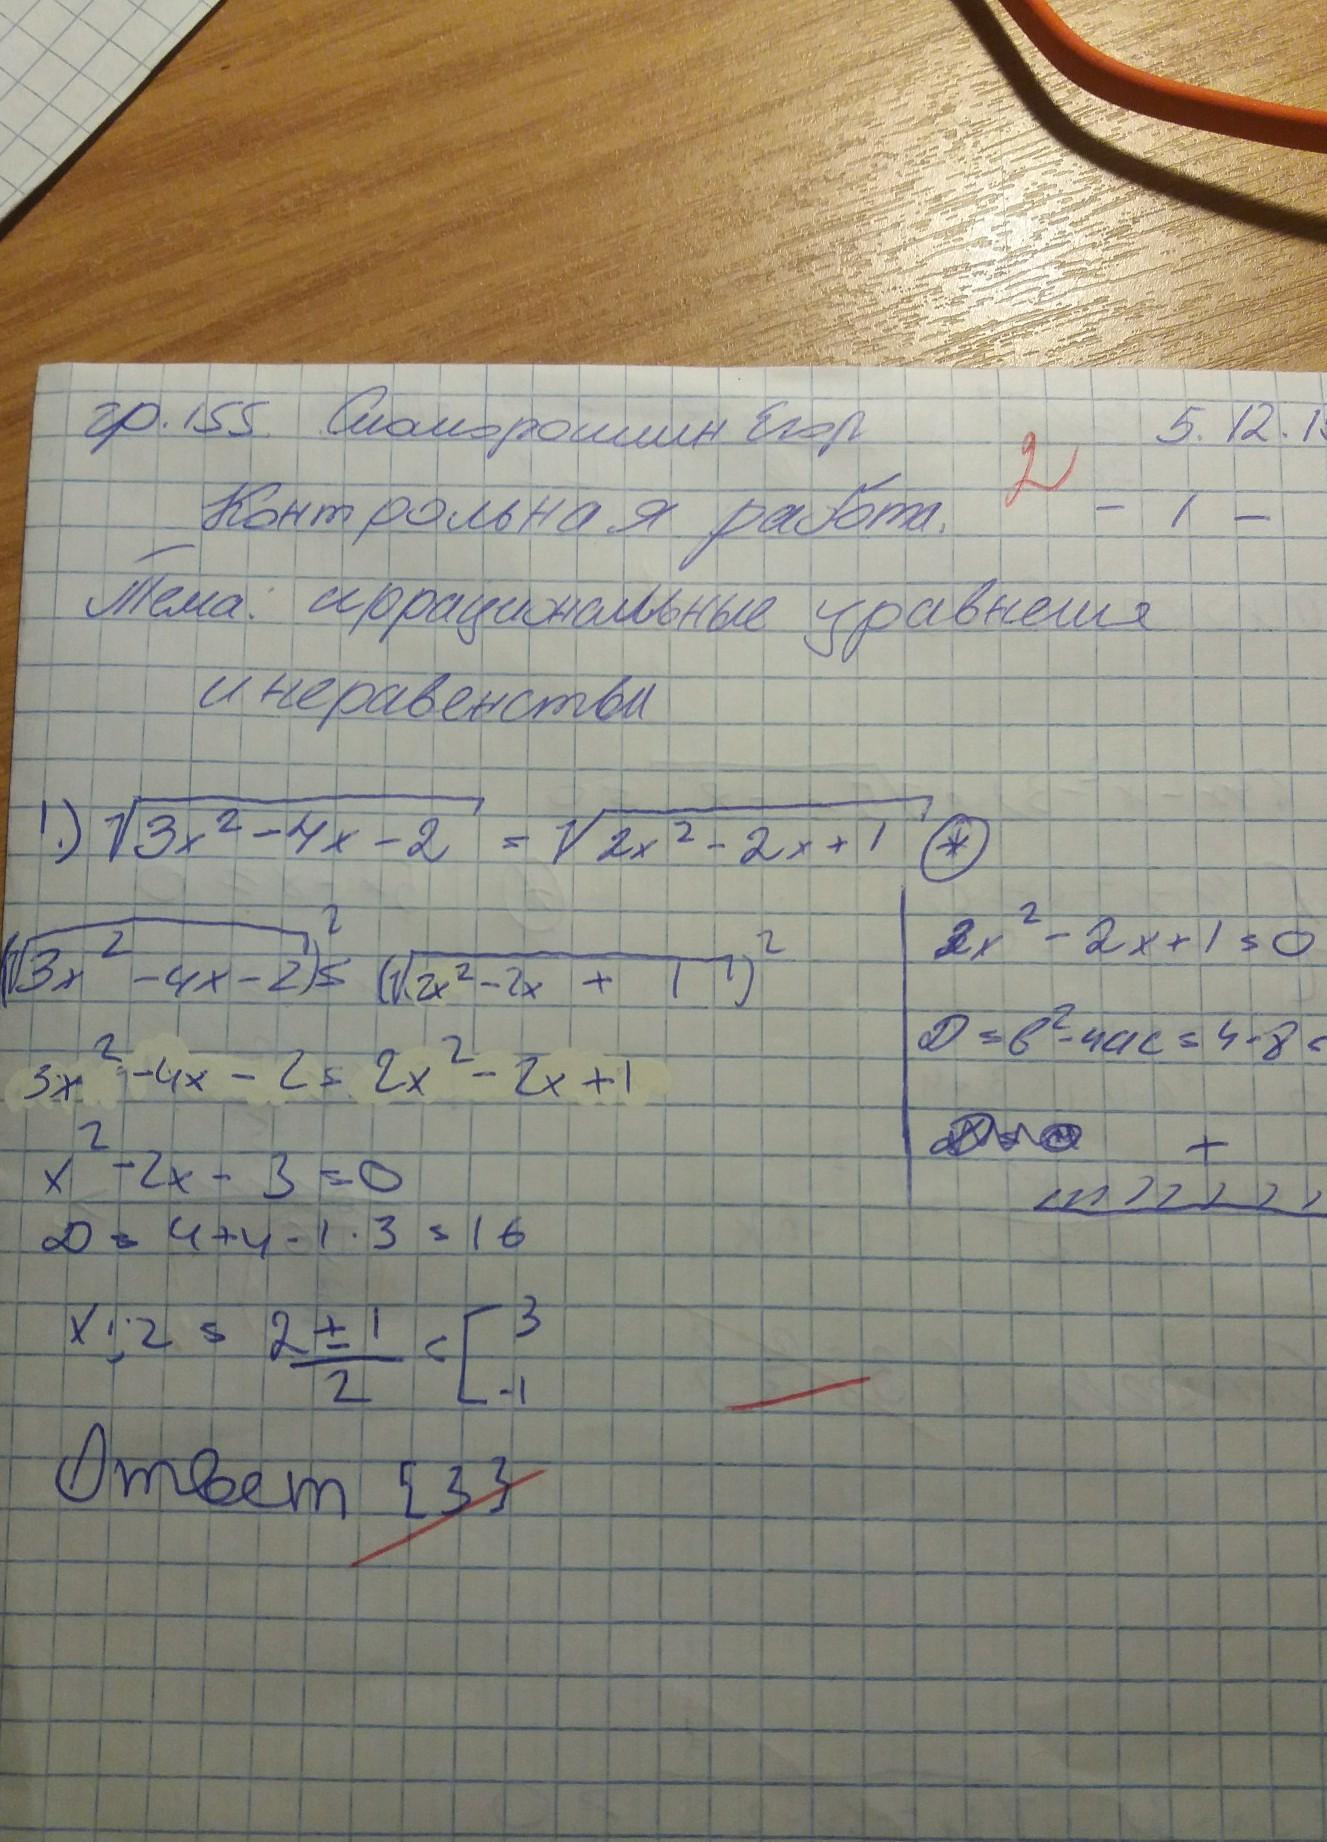 гр.155. Скоморошин Егор 5.12.
2
Контрольная работа. - 1 -
Тема: иррациональные уравнения
и неравенства
1.) √3x²-4x-2 = √2x²-2x+1 (*)
(√3x²-4x-2)² = (√2x²-2x+1)²
3x²-4x-2=2x²-2x+1
x²-2x-3=0
D=4+4·1·3=16
x1;2 = 2±1/2 = [3 -1
Ответ {3}
2x²-2x+1=0
D=b²-4ac=4-8=
+